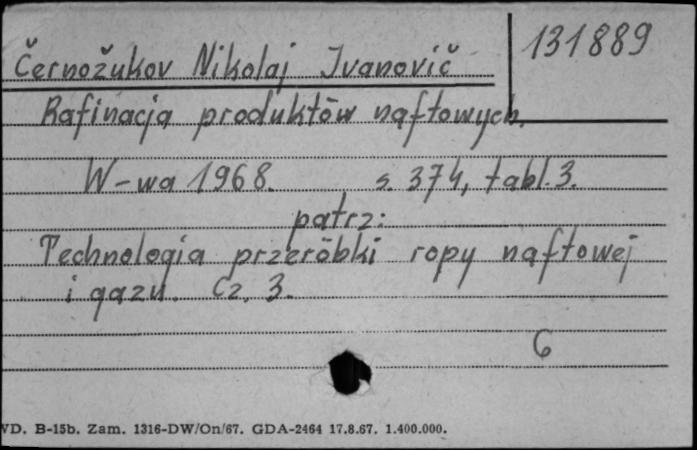 131889
Černožukov Nikolaj Ivanovič
Rafinacja produktów naftowych.
W-wa 1968. s. 374, tabl. 3.
patrz:
Technologia przeróbki ropy naftowej
i gazu. Cz. 3.
6
VD. B-15b. Zam. 1316-DW/On/67. GDA-2464 17.8.67. 1.400.000.